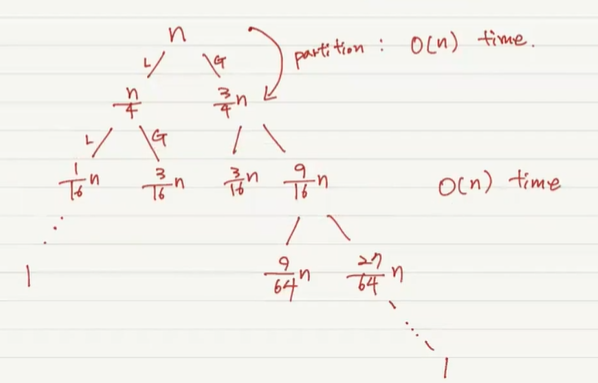 n
partition : O(n) time.
L G
n/4 3/4 n
L G
1/16 n 3/16 n 3/16 n 9/16 n O(n) time
9/64 n 27/64 n
1
1